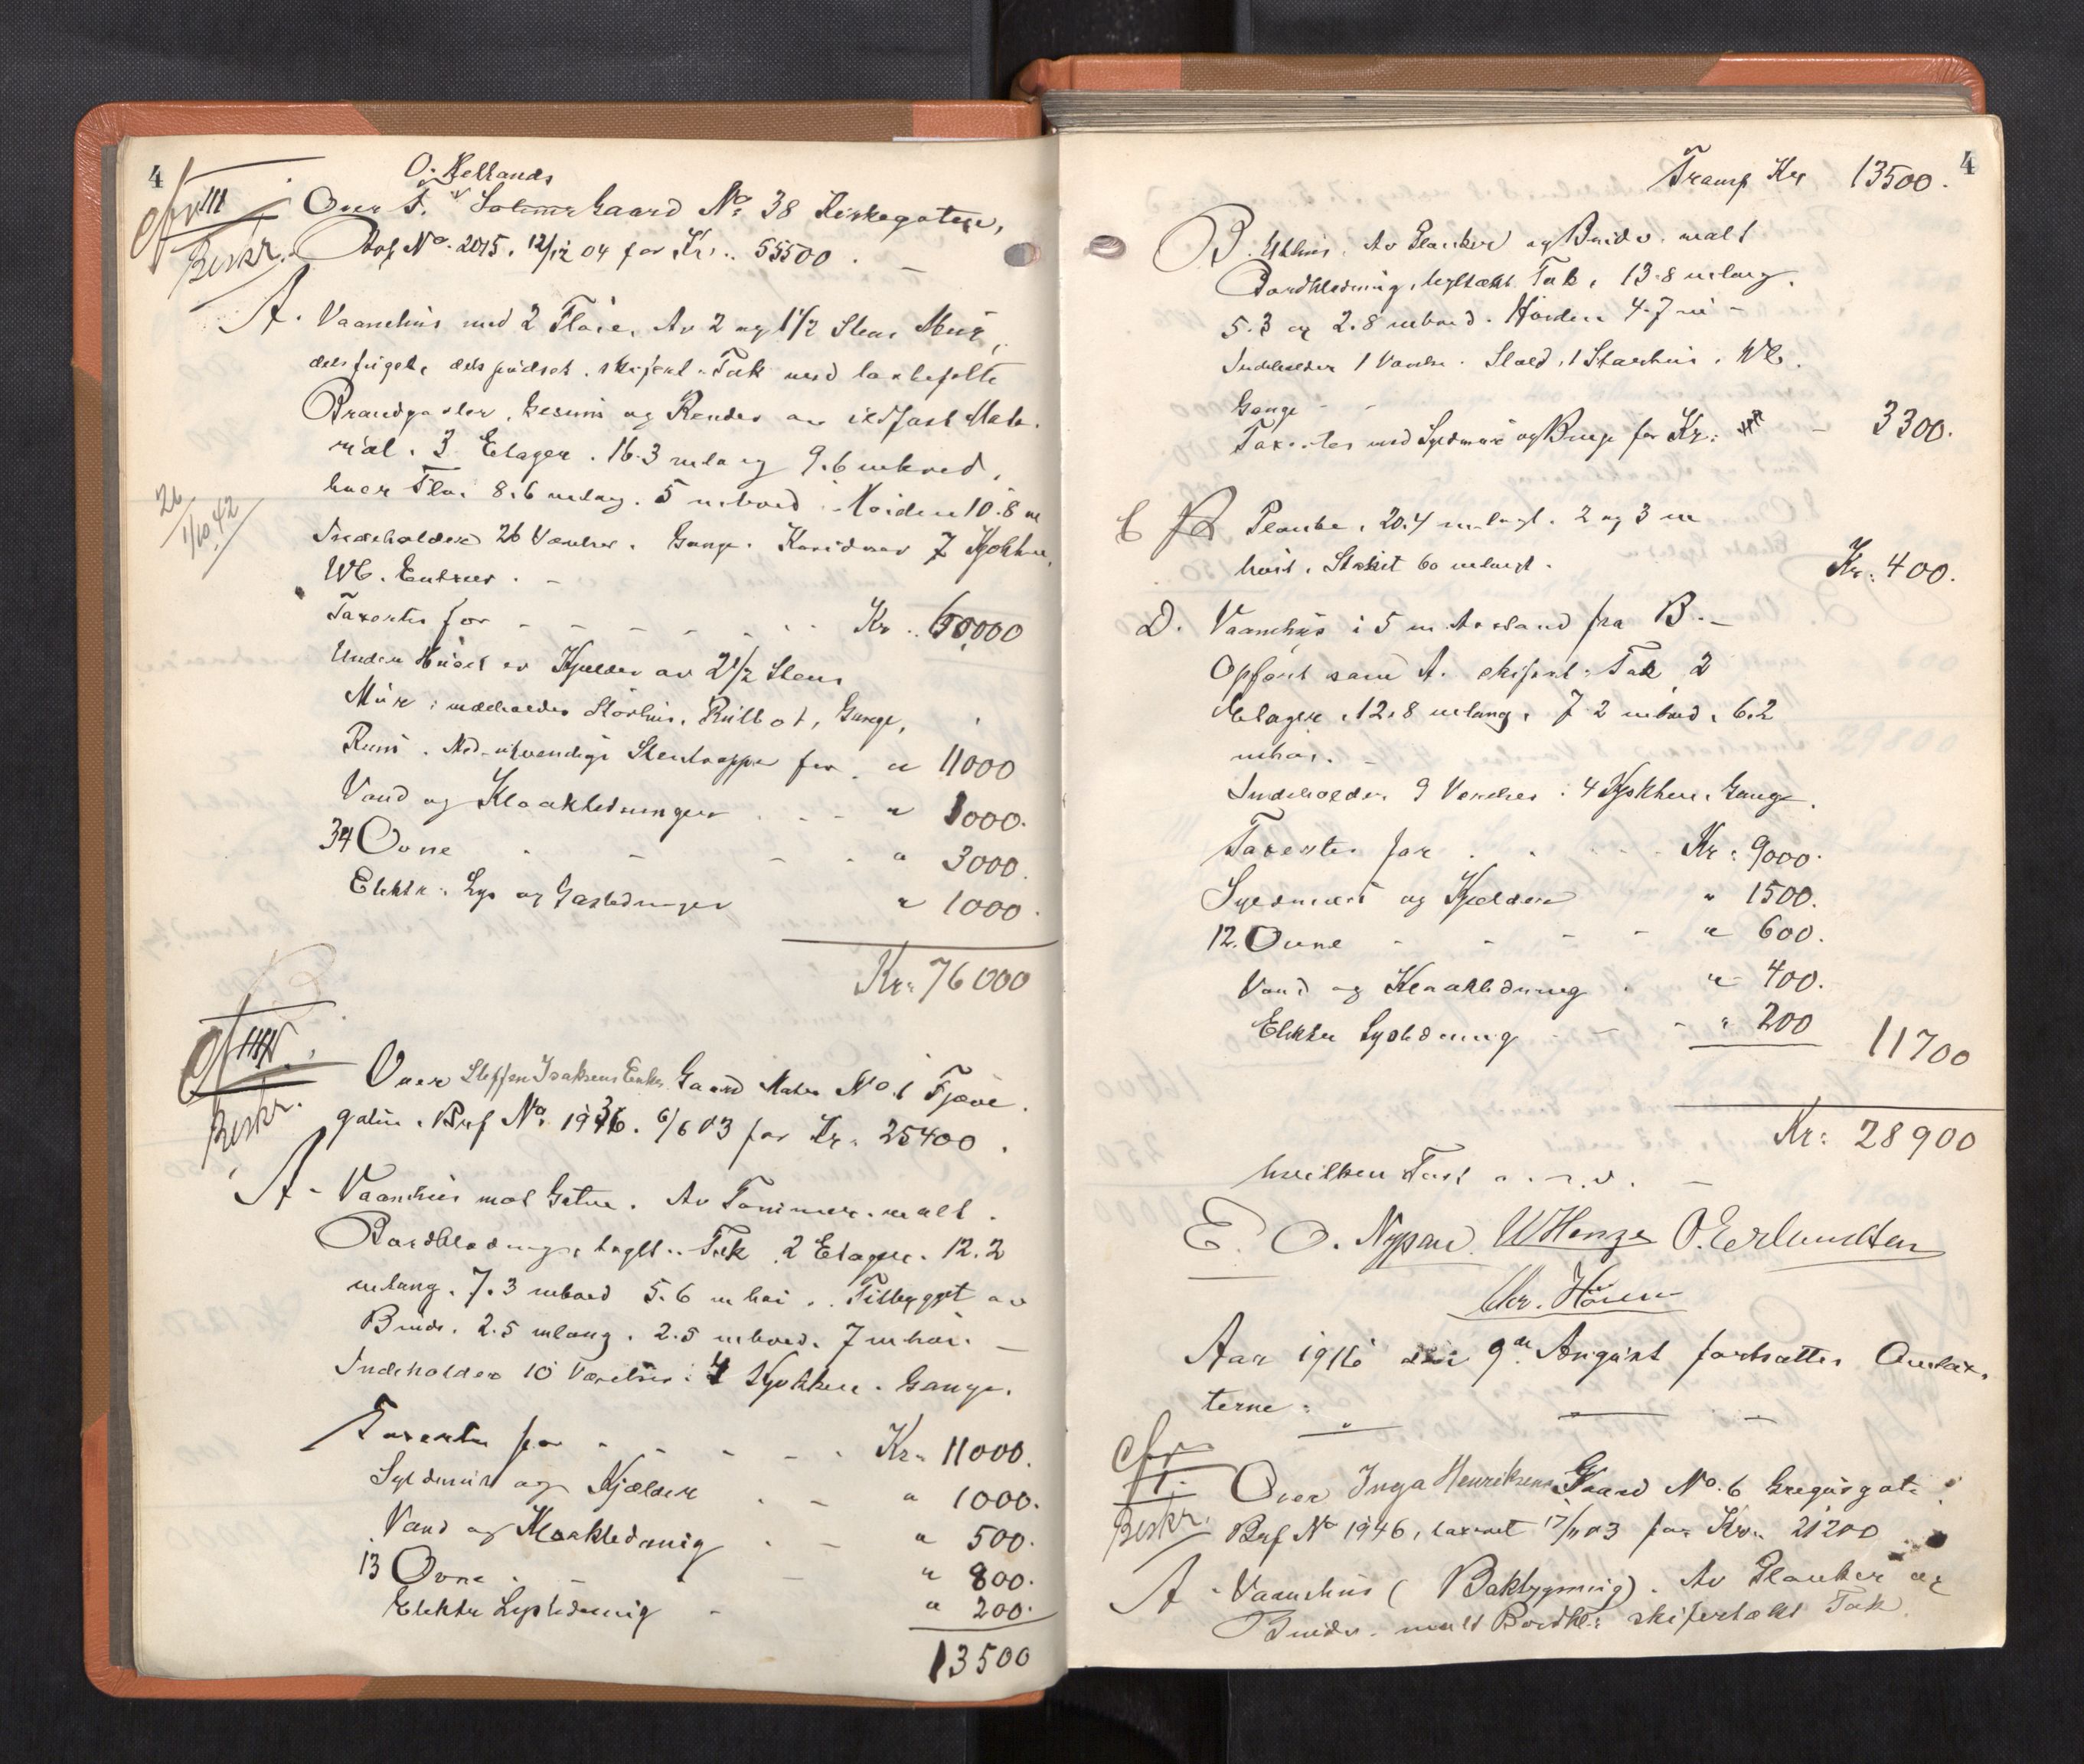 4
O. Hellands
Over T. Gaard No. 38 Kirkegaten,
Prof No. 2015. 12/12 04 for Kr. 55500.
Beskr.
A. Vaanehus med 2 Fløie. Av 2 og 1 1/2 Stens Mur,
dels fuget, dels pudset. skifert. Tak med
Brandgavler, Gesims og Render av ildfast Mate-
rial. 3 Etager. 16.3 m lang 9.6 m bred,
hver Fløi 8.6 m lang. 5 m bred. Høiden 10.8 m
26/10.42
Indeholder 26 Værelser. Gange. Koridorer 7 Kjøkken,
WC. Entreer.
Taxertes for Kr. 60,000
Under Huset er Kjelder av 2 1/2 Stens
Mur; indeholder Størhus, Rulbod, Gange,
Rum. Med utvendige Stentrapper for " 11000
Vand og Kloakledninger " 1000.
34 Ovne " 3000.
Elektr. Lys og Gasledninger " 1000.
Kr. 76000
Beskr.
Over Steffen Isaksens Enkes Gaard Matr No. 1 Fjære-
gaten. Prf No. 1936. 6/6 03 for Kr. 25400.
A. Vaanehus mot Gaten. Av Tømmer. malt.
Bordklædning, teglt. Tak. 2 Etager. 12.2
m lang. 7.3 m bred 5.6 m høi. Tilbygget av
Bindv. 2.5 m lang. 2.5 m bred. 7 m høi.
Indeholder 10 Værelser. 4 Kjøkken. Gange.
Taxertes for Kr. 11000.
Syldmur og Kjælder " 1000.
Vand og Kloakledning " 500.
13 Ovne " 800.
Elektr Lysledning " 200.
13500
4
Transp Kr 13500.
B. Uthus. Av Planker og Bindv. malt
Bordklædning, tegltækt Tak, 13.8 m lang.
5.3 og 2.8 m bred. Høiden 4.7 m
Indeholder 1 Værelse. Stald, 1 Størhus, WC.
Gange
Taxertes med Syldmur og Brygge for Kr. 3300.
C Planke, 20.4 m langt. 2 og 3 m
høit. Stakit 60 m langt. Kr. 400.
D. Vaanehus i 5 m Avstand fra B.
Opført som A. skifert. Tak 2
Etager, 12.8 m lang, 7.2 m bred, 6.2
m høi.
Indeholder 9 Værelser. 4 Kjøkken. Gange.
Taxertes for Kr. 9000.
Syldmur og Kjelder " 1500.
12 Ovne " 600.
Vand og Kloakledning " 400.
Elektr Lysledning " 200 11700
Kr. 28900
hvilken Taxt o.s.v.
E. O. Nypan. W Henze O. Erlandsen
Chr. Høien
Aar 1916 den 9de August fortsattes Omtax-
terne:
Cfr
I.
Beskr.
Over Inga Henriksens Gaard No. 6 Gregusgate
Prf No 1946, taxeret 17/11 03 for Kr. 21200
A. Vaanehus (Bakbygning). Av Planker og
Bindv. malt Bordkl. skifertækt Tak.